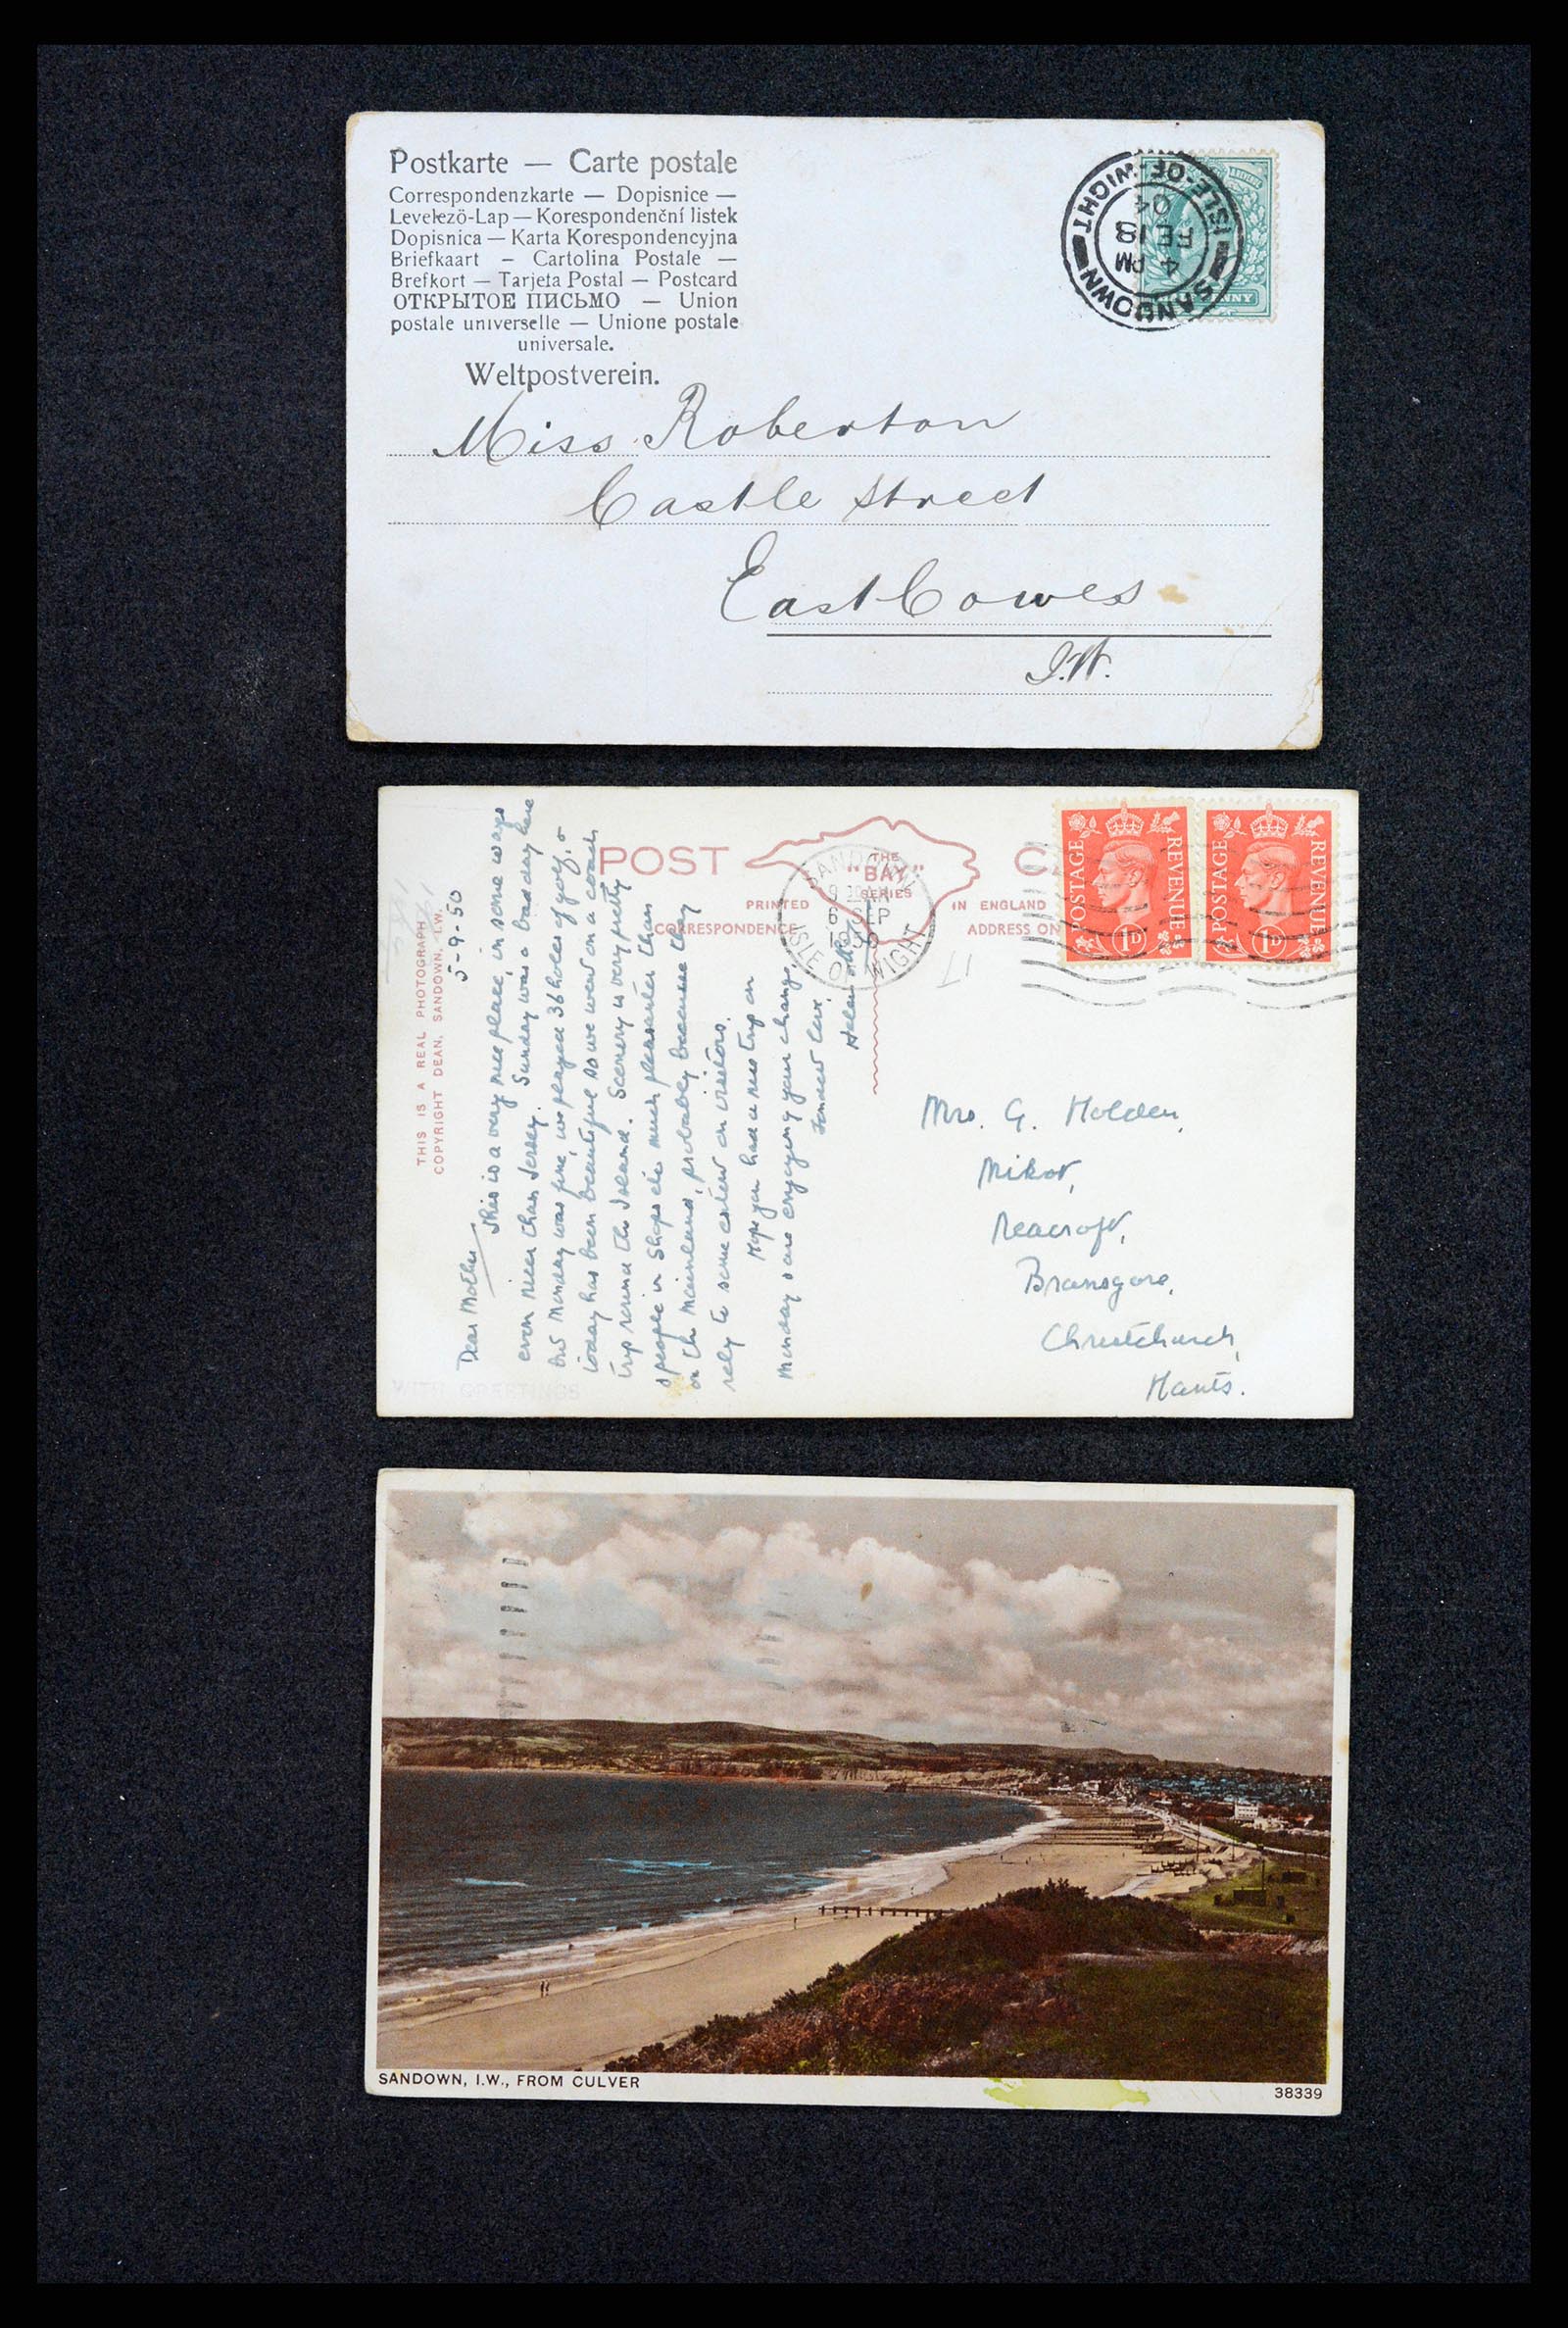 Postkarte — Carte postale
Correspondenzkarte — Dopisnice —
Levelező-Lap — Korespondenční listek
Dopisnica — Karta Korespondencyjna
Briefkaart – Cartolina Postale —
Brefkort — Tarjeta Postal — Postcard
ОТКРЫТОЕ ПИСЬМО — Union
postale universelle — Unione postale
universale.
Weltpostverein.
SANDOWN
4 PM
FE 18
04
ISLE-OF-WIGHT
Miss Roberton
Castle Street
East Cowes
I.W.
THIS IS A REAL PHOTOGRAPH
COPYRIGHT DEAN, SANDOWN, I.W.
5-9-50
Dear Mother
This is a very nice place, in some ways
even nicer than Jersey. Sunday was a bad day here
but Monday was fine, we played 36 holes of golf, &
today has been beautiful so we went on a coach
trip round the Island. Scenery is very pretty
& people in shops etc much pleasanter than
on the mainland, probably because they
rely to some extent on visitors.
Hope you had a nice trip on
Monday & are enjoying your change.
Fondest love,
Helen
POST
THE
"BAY"
SERIES
PRINTED
IN ENGLAND
CORRESPONDENCE
ADDRESS ON
SANDOWN
6 SEP
1950
ISLE OF WIGHT
POSTAGE REVENUE
1D
POSTAGE REVENUE
1D
Mrs. G. Holden,
Neacroft,
Bransgore,
Christchurch,
Hants.
WITH GREETINGS
SANDOWN, I.W., FROM CULVER
38339